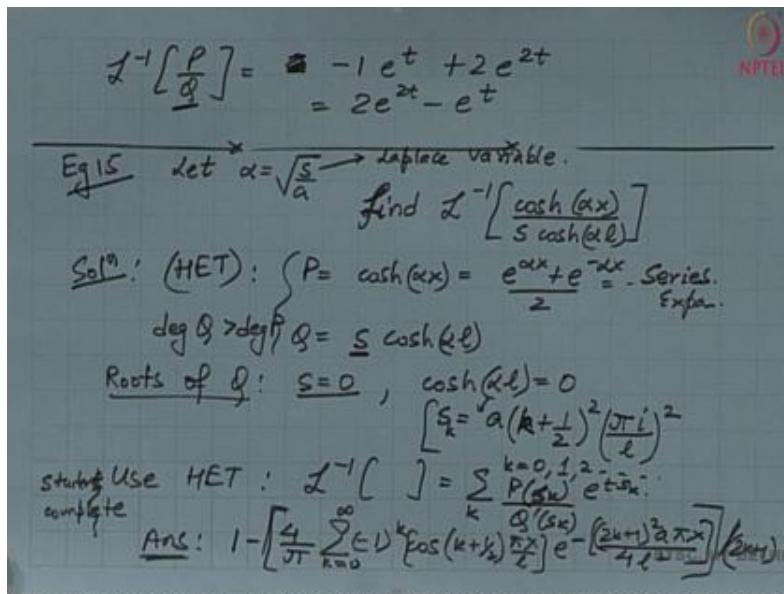 L⁻¹[P/Q] = -1 eᵗ + 2 e²ᵗ
= 2e²ᵗ - eᵗ
NPTEL
Eg 15 Let α = √(s/a) → Laplace variable.
find L⁻¹[cosh(αx) / s cosh(αl)]
Solⁿ: (HET): { P = cosh(αx) = (e^αx + e^-αx)/2 = - Series. Expa..
deg Q > deg P, Q = s cosh(αl)
Roots of Q: s=0, cosh(αl) = 0
[s_k = a(k + 1/2)² (πi/l)²
k=0, 1, 2 - - -
Use HET: L⁻¹[ ] = Σ_k P(s_k)/Q'(s_k) e^(t s_k).
complete
Ans: 1 - [4/π Σ_{k=0}^∞ (-1)^k {cos(k+1/2) πx/l] e^-[(2k+1)² a πx / 4l²]] /(2k+1)